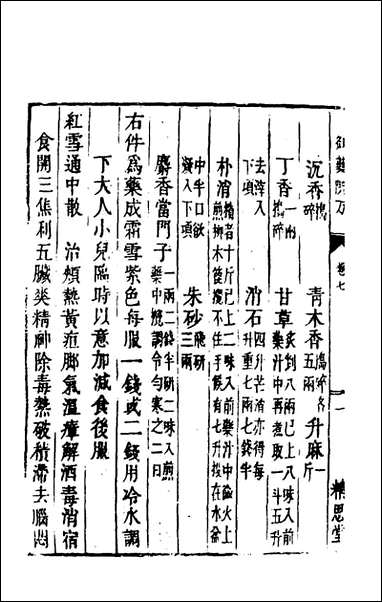 御藥院方 卷七 一 精思堂
沉香搗碎 青木香搗碎各五兩 升麻一斤
丁香一兩搗碎 甘草炙剉八兩已上八味入前藥汁中再煮取一斗五升
去滓入下項 消石四升芒消亦得每升重七兩七錢半
朴消精者十斤已上二味入前藥汁中微火上煎柳木篦攪不住手候有七升投在水盆
中半日欲凝入下項 朱砂飛研三兩
麝香當門子一兩二錢半研二味入前藥中攪調令勻寒之二日
右件爲藥成霜雪紫色每服一錢或二錢用冷水調
下大人小兒臨時以意加減食後服
紅雪通中散 治煩熱黃疸腳氣溫瘴解酒毒消宿
食開三焦利五臟爽精神除毒熱破積滯去腦悶